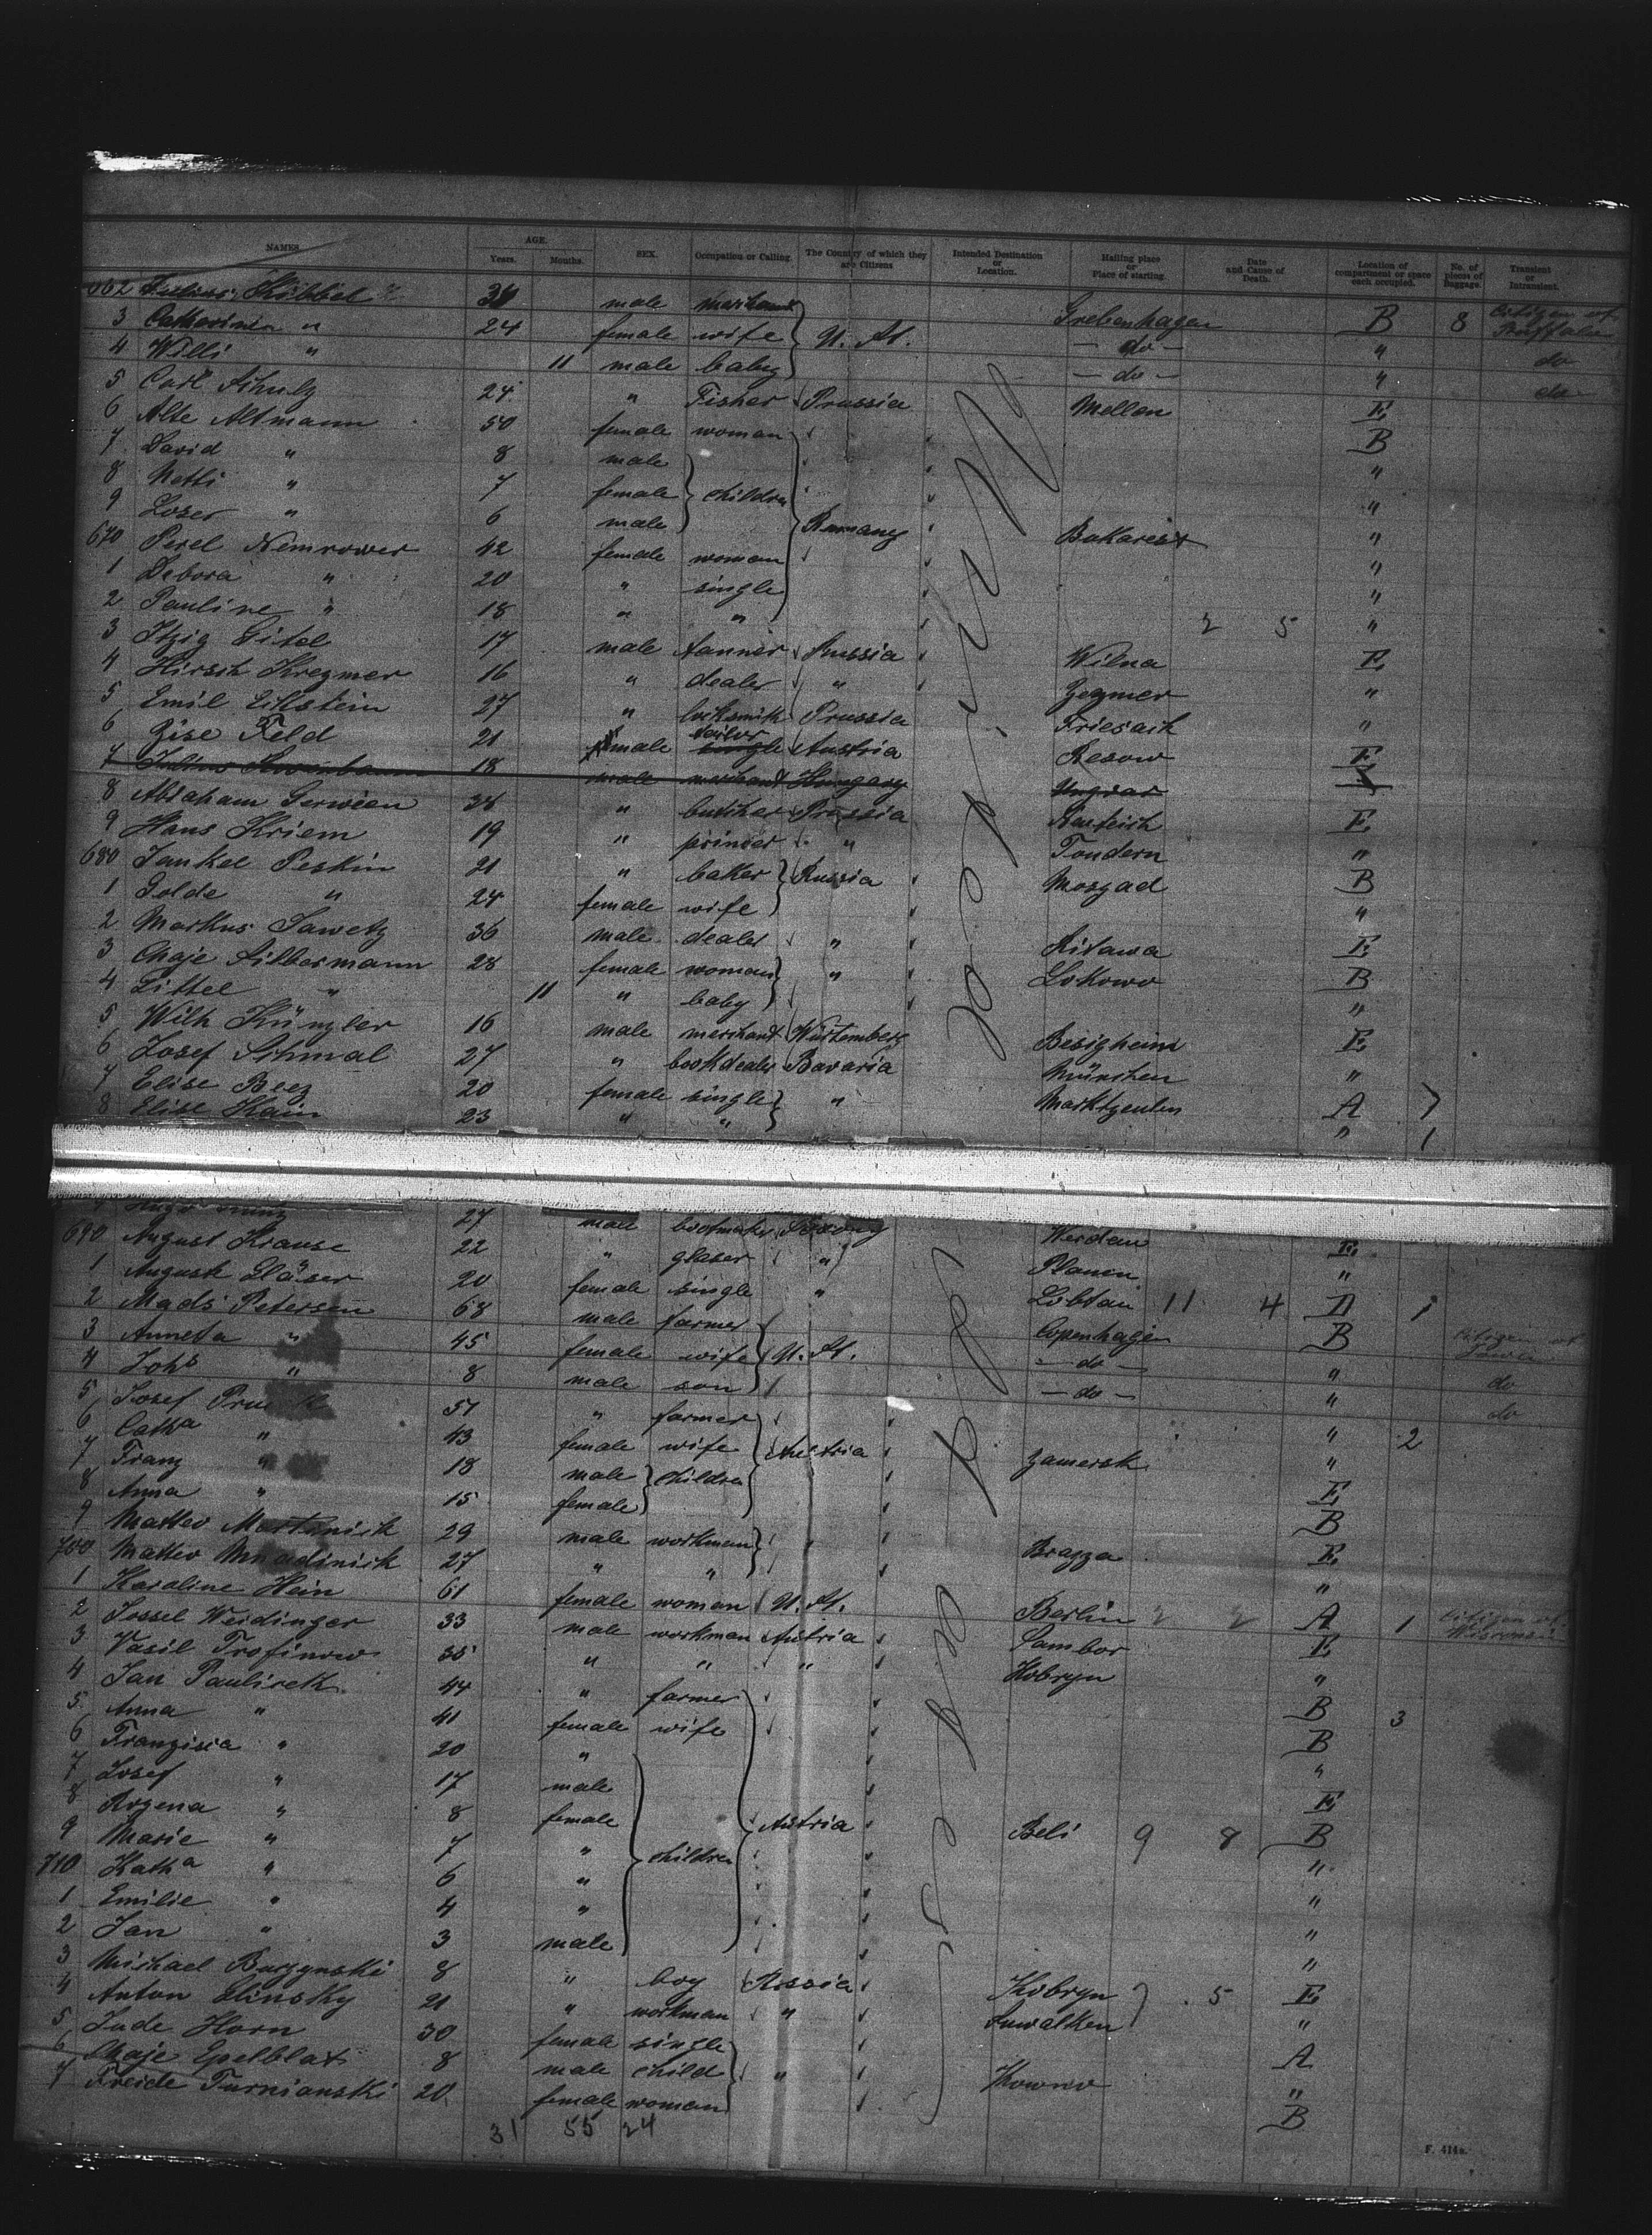 NAMES. AGE. SEX. Occupation or Calling. The Country of which they are Citizens Intended Destination or Location. Hailing place or Place of starting. Date and Cause of Death. Location of compartment or space each occupied. No. of pieces of Baggage. Transient or Intransient.
Years. Months.
662 Julius Köbbel male merchant Grebenhagen B 8 Citizen of Buffalo
3 Catharina " 24 female wife U. St. - do - " do
4 Willi " 11 male baby - do - " do
5 Carl Schulz 24 " Fisher Prussia Mellen E
6 Alte Altmann 50 female woman B
7 David " 8 male "
8 Netti " 7 female children "
9 Loser " 6 male Rumany Bukarest "
670 Perel Nemrower 42 female woman "
1 Debora " 20 " single "
2 Pauline " 18 " " 2 5 "
3 Itzig Gitel 17 male tanner Russia Wilna E
4 Hirsch Kregmer 16 " dealer " Zegmer "
5 Emil Eckstein 27 " locksmith Prussia Friesack "
6 Zise Feld 21 male tailor Austria Resow E
7 Julius Rosenbaum 18 male merchant Hungary Ungvar
8 Abraham Gerwien 28 " butcher Prussia E
9 Hans Kriem 19 " " Tondern "
680 Jankel Peskin 21 " baker Russia Mosgad B
1 Golde " 24 female wife "
2 Markus Sawetz 36 male dealer " Kitawa E
3 Chaje Silbermann 28 female woman " Lokowo B
4 Littel " 11 " baby "
5 Wilh Künzler 16 male merchant Würtemberg Besigheim E
6 Josef Schmal 27 " bookdealer Bavaria München "
7 Elise Beez 20 female single " Marktzeuln A
8 Elise Hain 23 " " " 1
27 male bootmaker Saxony Werdau E
690 August Krause 22 " glaser " Plauen "
1 Auguste Gläser 20 female single " Löbtau 11 4 1
2 Mads Petersen 68 male farmer Copenhagen B Citizen of Iowa
3 Anneta " 45 female wife U. St. - do - " do
4 Johs " 8 male son - do - " do
5 Josef 51 " farmer " 2
6 Catha " 43 female wife Austria Zamersk "
7 Franz " 18 male children E
8 Anna " 15 female B
9 Matteo 29 male workman Brazza E
700 Matteo 27 " " "
1 Karoline Hein 61 female woman U. St. Berlin 2 2 A 1 Citizen of Wisconsin
2 Jossel Weidinger 33 male workman Austria Sambor E
3 Vasil Trofinow 35 " " " Kobryn "
4 Jan Paulireck 44 " farmer B 3
5 Anna " 41 female wife B
6 Franzisca " 20 " "
7 Josef " 17 male E
8 Rozena " 8 female Austria Beli 9 8 B
9 Marie " 7 " children "
710 Katha " 6 " "
1 Emilie " 4 " "
2 Jan " 3 male "
3 Michael Burzynski 8 " boy Russia Kobryn 5 E
4 Anton Glinsky 21 " workman " Suwalken "
5 Jude Horn 30 female single A
6 Chaje Epelblat 8 male child " Kowno "
7 Freide Turnianski 20 female woman B
31 55 24
F. 414a.